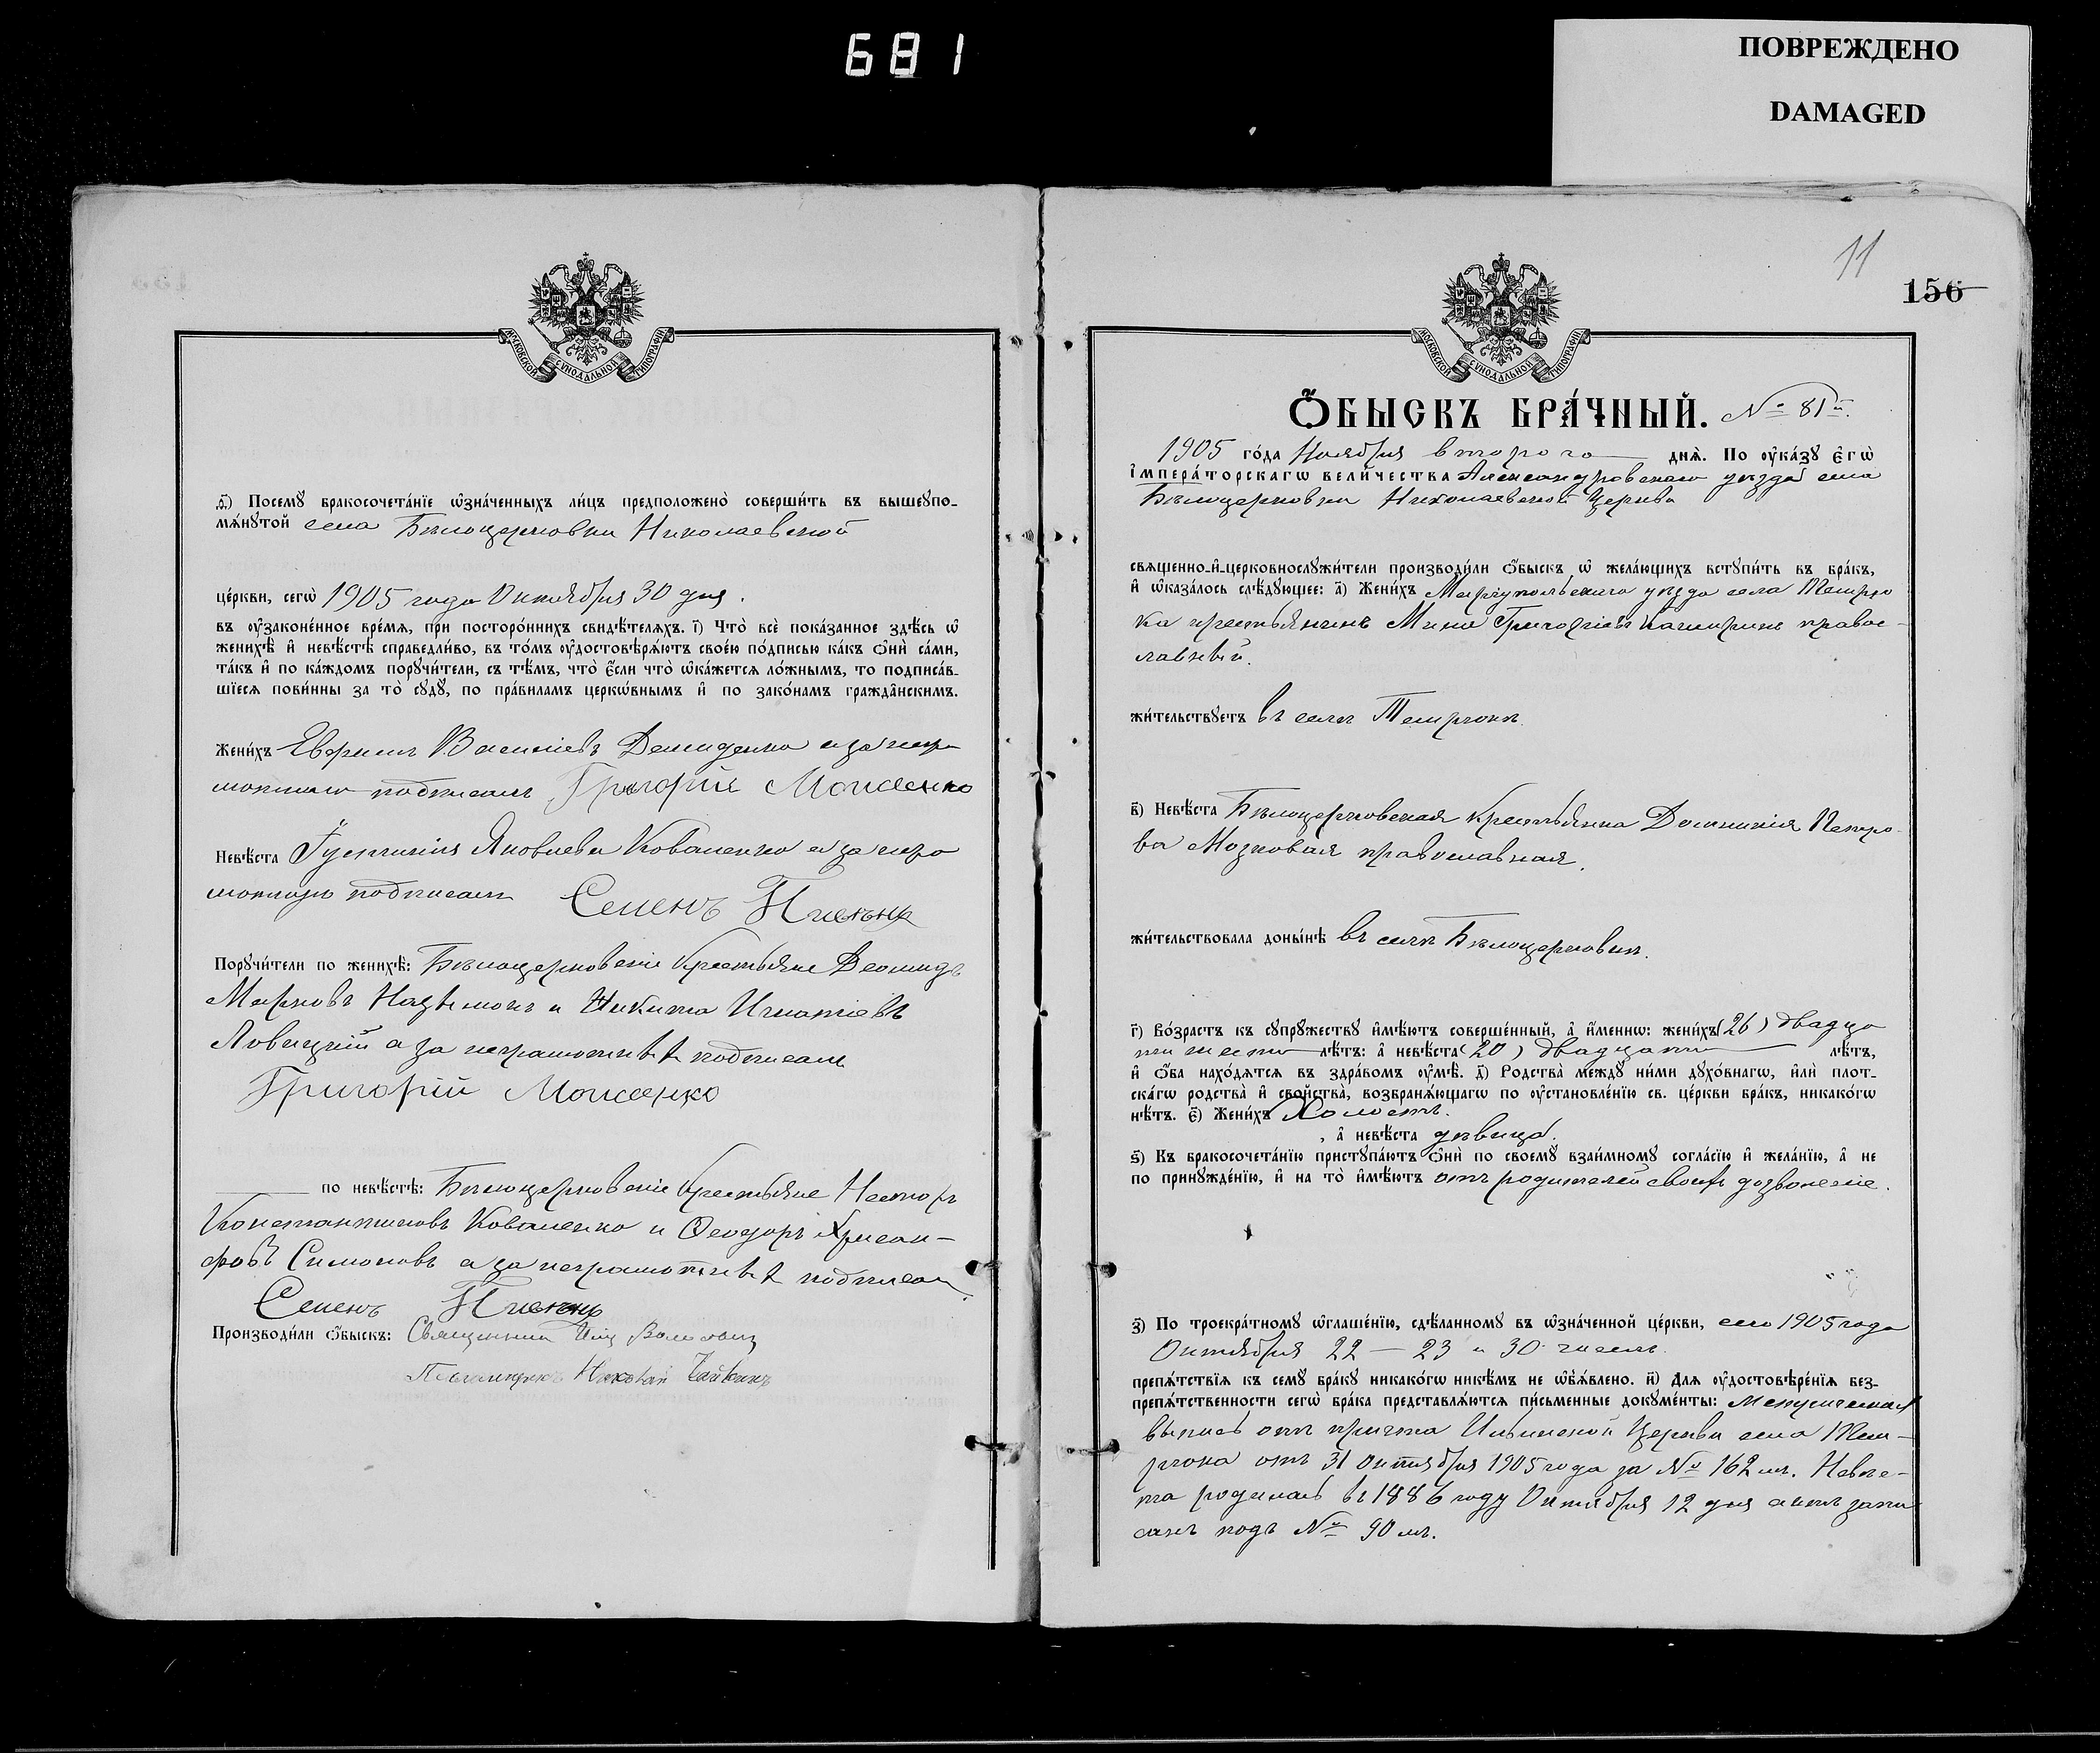 681
ПОВРЕЖДЕНО
DAMAGED
МОСКОВСКОЙ СѴНОДАЛЬНОЙ ТИПОГРАФІИ
ѳ҃) Посемꙋ̀ бракосочета́нїе ѡ҆зна́ченныхъ ли́цъ предположено̀ соверши́ть въ вышеꙋпо-
мѧ́нꙋтой села Бѣлоцерковки Николаевской
це́ркви, сегѡ̀ 1905 года Октября 30 дня.
въ ᲂу҆зако́ненное вре́мѧ, при посторо́ннихъ свидѣ́телѧхъ. і҃) Что̀ всѐ пока́занное здѣ́сь ѡ҆
женихѣ̀ и҆ невѣ́стѣ справедли́во, въ то́мъ ᲂу҆достовѣрѧ́ютъ свое́ю по́дписью ка́къ ѻ҆нѝ са́ми,
та́къ и҆ по ка́ждомъ порꙋчи́тели, съ тѣ́мъ, что̀ є҆́сли что̀ ѡ҆ка́жетсѧ ло́жнымъ, то подписа́в-
шїесѧ пови́нны за то̀ сꙋдꙋ̀, по пра́виламъ церкѡ́внымъ и҆ по зако́намъ гражда̑нскимъ.
Жени́хъ Евфимъ Васильевъ Демиденко а за негра
мотнаго подписалъ Григорій Моисеенко
Невѣ́ста Іустинія Яковлева Коваленко а за негра
мотную подписалъ Семенъ
Порꙋчи́тели по женихѣ̀: Бѣлоцерковскіе Крестьяне Деомидъ
Марковъ и Никита Игнатіевъ
Ловицкій а за неграмотныхъ подписалъ
Григорій Моисеенко
по невѣ́стѣ: Бѣлоцерковскіе Крестьяне Несторъ
Константиновъ Коваленко и Ѳеодоръ Хрисан-
фовъ Симоновъ а за неграмотныхъ подписалъ
Семенъ
Производи́ли ѻ҆́быскъ: Священникъ
Псаломщикъ Николай Чайкинъ
11
156
МОСКОВСКОЙ СѴНОДАЛЬНОЙ ТИПОГРАФІИ
Ѻ҆́БЫСКЪ БРА́ЧНЫЙ. № 81й.
1905 го́да Ноября второго днѧ̀. По ᲂу҆ка́зꙋ є҆гѡ̀
і҆мпера́торскагѡ вели́чества Александровскаго уѣзда села
Бѣлоцерковки Николаевской Церкви
свѧщенно-и҆-церковнослꙋжи́тели производи́ли ѻ҆́быскъ ѡ҆ жела́ющихъ встꙋпи́ть въ бра́къ,
и҆ ѡ҆каза́лось слѣ́дꙋющее: а҃) Жени́хъ Маріупольскаго уѣзда села Темрю
ка крестьянинъ Мина Григоріевъ правос-
лавный.
жи́тельствꙋетъ въ селѣ Темрюкѣ.
в҃) Невѣ́ста Бѣлоцерковская Крестьянка Домникія Петро-
ва Мозковая православная.
жи́тельствовала доны́нѣ въ селѣ Бѣлоцерковкѣ.
г҃) Во́зрастъ къ сꙋпрꙋ́жествꙋ и҆мѣ́ютъ соверше́нный, а҆ и҆́меннѡ: жени́хъ (26) двадца
ти шести лѣ́тъ: а҆ невѣ́ста (20) двадцати лѣ́тъ,
и҆ ѻ҆́ба нахо́дѧтсѧ въ здра́вомъ ᲂу҆мѣ̀. д҃) Родства̀ междꙋ̀ ни́ми дꙋхо́внагѡ, и҆лѝ плот-
ска́гѡ родства̀ и҆ сво́йства̀, возбранѧ́ющагѡ по ᲂу҆становле́нїю св. це́ркви бра́къ, никако́гѡ
нѣ́тъ. є҃) Жени́хъ Холостъ.
, а҆ невѣ́ста дѣвица.
ѕ҃) Къ бракосочета́нїю пристꙋпа́ютъ ѻ҆нѝ по своемꙋ̀ взаи́мномꙋ согла́сїю и҆ жела́нїю, а҆ не
по принꙋжде́нїю, и҆ на то̀ и҆мѣ́ютъ отъ родителей своихъ дозволеніе.
з҃) По троекра́тномꙋ ѡ҆глаше́нїю, сдѣ́ланномꙋ въ ѡ҆зна́ченной це́ркви, сего 1905 года
Октября 22 — 23 и 30 числъ
препѧ́тствїѧ къ семꙋ̀ бра́кꙋ никако́гѡ никѣ́мъ не ѡ҆б̾ѧ́влено. и҃) Длѧ ᲂу҆достовѣре́нїѧ без-
препѧ́тственности сегѡ̀ бра́ка представлѧ́ютсѧ пи́сьменные докꙋме́нты: Метрическая
выпись отъ причта Ильинской Церкви села Тем-
рюка отъ 31 Октября 1905 года за № 162мъ. Невѣс-
та родилась въ 1886 году Октября 12 дня актъ запи
санъ подъ № 90мъ.